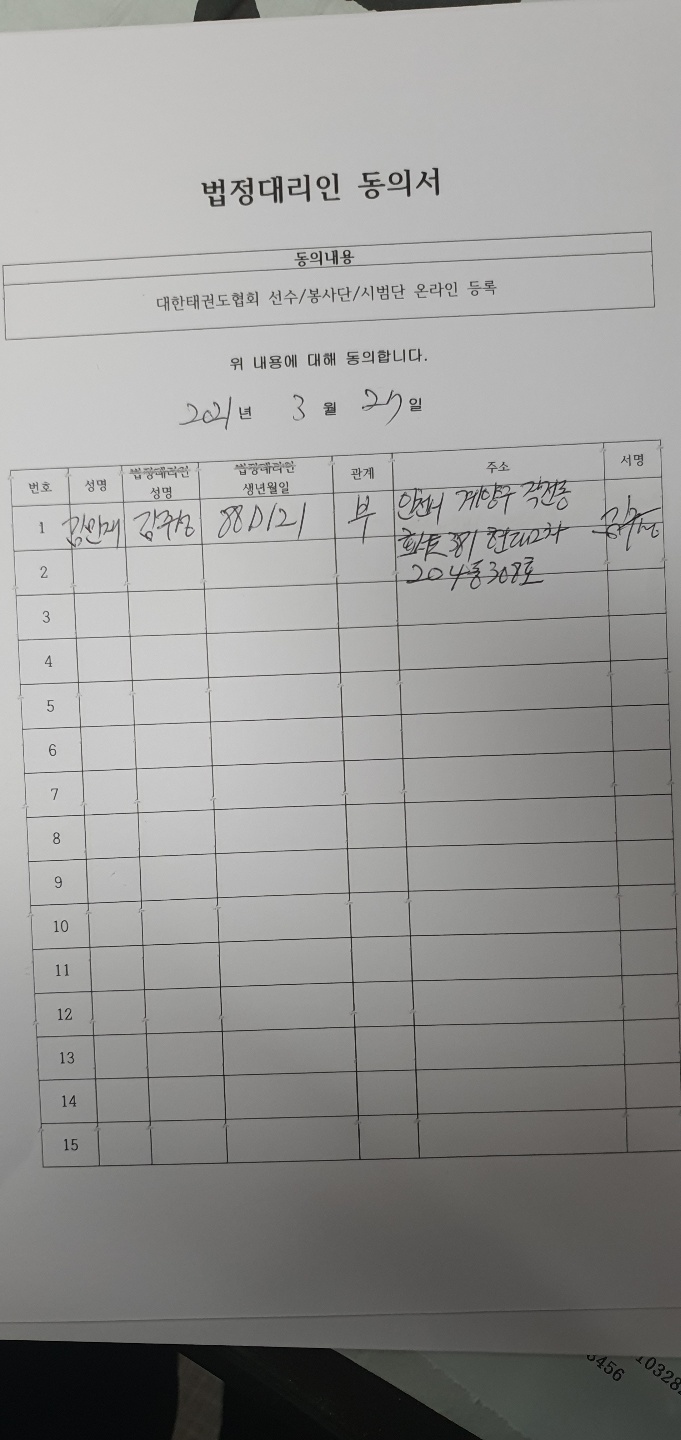 법정대리인 동의서
동의내용
대한태권도협회 선수/봉사단/시범단 온라인 등록
위 내용에 대해 동의합니다.
2021년 3월 27일
번호 성명 법정대리인 성명 법정대리인 생년월일 관계 주소 서명
1 부 계양구
2 204동308호
3
4
5
6
7
8
9
10
11
12
13
14
15
3456